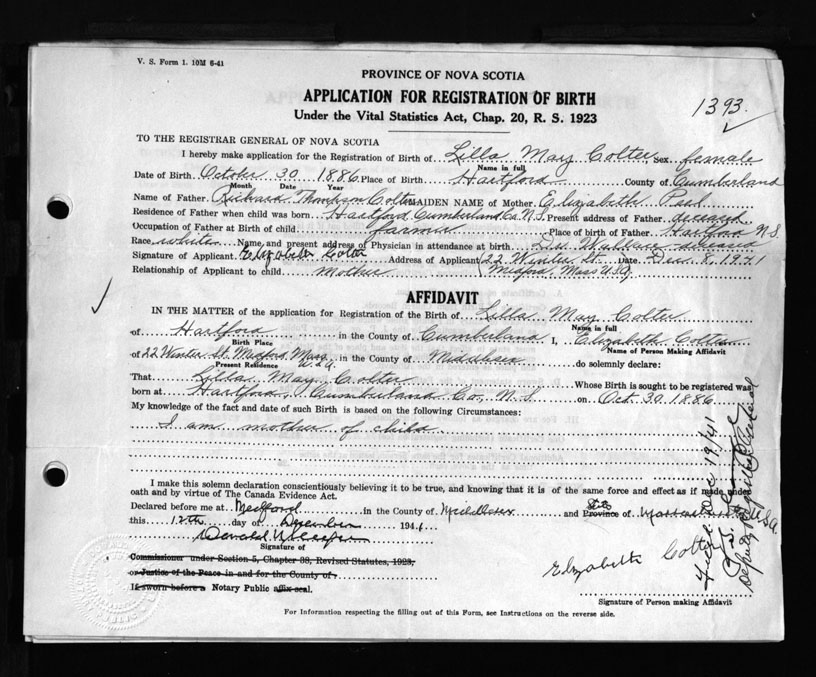 V. S. Form 1. 10M 6-41
PROVINCE OF NOVA SCOTIA
APPLICATION FOR REGISTRATION OF BIRTH
Under the Vital Statistics Act, Chap. 20, R. S. 1923
1393.
TO THE REGISTRAR GENERAL OF NOVA SCOTIA
I hereby make application for the Registration of Birth of Lilla May Colter Sex female
Name in full
Date of Birth October 30 1886 Place of Birth Hartford County of Cumberland
Month Date Year
Name of Father Richard Thompson Colter MAIDEN NAME of Mother Elizabeth Peel
Residence of Father when child was born Hartford Cumberland Co N.S. Present address of Father deceased
Occupation of Father at Birth of child farmer Place of birth of Father Hartford N.S.
Race white Name and present address of Physician in attendance at birth Wallace deceased
Signature of Applicant Elizabeth Colter Address of Applicant 22 Winter St. Date Dec. 8, 1941
Relationship of Applicant to child mother Medford, Mass USA
AFFIDAVIT
IN THE MATTER of the application for Registration of the Birth of Lilla May Colter
Name in full
of Hartford in the County of Cumberland I, Elizabeth Colter
Birth Place Name of Person Making Affidavit
of 22 Winter St. Medford, Mass U.S.A. in the County of Middlesex do solemnly declare:
Present Residence
That Lilla May Colter Whose Birth is sought to be registered was
born at Hartford, Cumberland Co, N.S. on Oct. 30. 1886
My knowledge of the fact and date of such Birth is based on the following Circumstances:
I am mother of child.
I make this solemn declaration conscientiously believing it to be true, and knowing that it is of the same force and effect as if made under
oath and by virtue of The Canada Evidence Act.
Declared before me at Medford in the County of Middlesex and State Province of Massachusetts U.S.A.
this 12th day of December 1941
Donald
Signature of
Commissioner under Section 5, Chapter 38, Revised Statutes, 1923,
or Justice of the Peace in and for the County of
If sworn before a Notary Public affix seal.
Elizabeth Colter
Signature of Person making Affidavit
Filed Dec 19/41
Deputy Registrar General
For Information respecting the filling out of this Form, see Instructions on the reverse side.